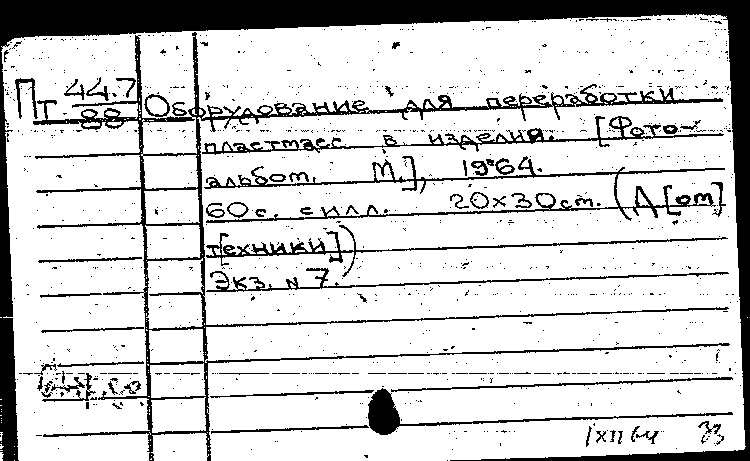 Пт 44.7
88 Оборудование для переработки
пластмасс в изделия. [Фото-
альбом. М.], 1964.
60 с. с илл. 20х30 ст. (Д[ом]
т[ехники])
Экз. № 7.
1 XII 64 33